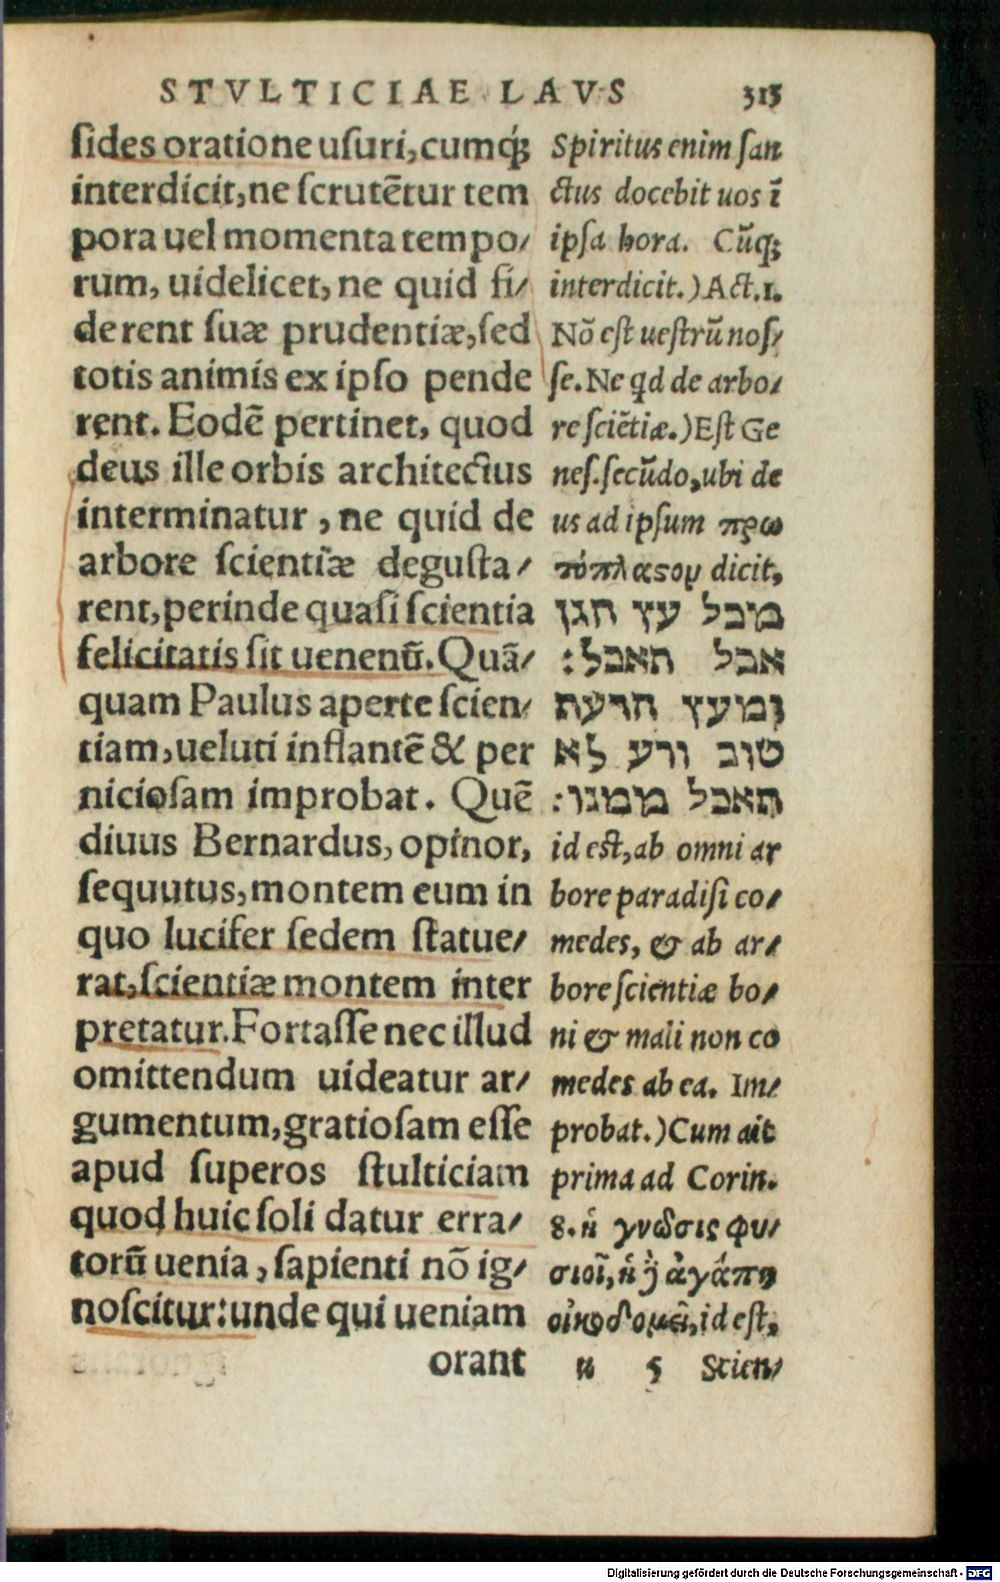 STVLTICIAE LAVS 313
sides oratione usuri, cumq́;
interdicit, ne scrutētur tem
pora uel momenta tempo/
rum, uidelicet, ne quid fi/
derent suæ prudentiæ, sed
totis animis ex ipso pende
rent. Eodē pertinet, quod
deus ille orbis architectus
interminatur, ne quid de
arbore scientiæ degusta/
rent, perinde quasi scientia
felicitatis sit uenenū. Quā/
quam Paulus aperte scien/
tiam, ueluti inflantē & per
niciosam improbat. Quē
diuus Bernardus, opinor,
sequutus, montem eum in
quo lucifer sedem statue/
rat, scientiæ montem inter
pretatur. Fortasse nec illud
omittendum uideatur ar/
gumentum, gratiosam esse
apud superos stulticiam
quod huic soli datur erra/
torū uenia, sapienti nō ig/
noscitur: unde qui ueniam
orant
Spiritus enim san
ctus docebit uos ī
ipsa hora. Cūq;
interdicit.) Act.1.
Nō est uestrū nos/
se. Ne qd de arbo/
re sciētiæ.) Est Ge
nes. secūdo, ubi de
us ad ipsum πρω
τόπλαστον dicit,
מכל עץ הגן
אכל תאכל:
ומעץ הדעת
טוב ורע לא
תאכל ממנו:
id est, ab omni ar
bore paradisi co/
medes, & ab ar/
bore scientiæ bo/
ni & mali non co
medes ab ea. Im/
probat.) Cum ait
prima ad Corin.
8. ἡ γνῶσις φυ/
σιοῖ, ἡ δὲ ἀγάπη
οἰκοδομεῖ, id est,
u 5 Scien/
Digitalisierung gefördert durch die Deutsche Forschungsgemeinschaft - DFG